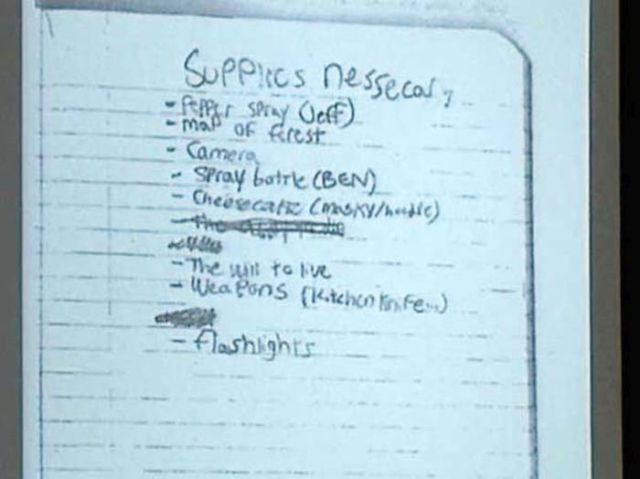 Supplies nessecary
- Pepper spray (Jeff)
- map of forest
- Camera
- Spray bottle (BEN)
- Cheesecake (masky/hoodie)
- The
- The will to live
- Weapons (Kitchen Knife...)
- flashlights